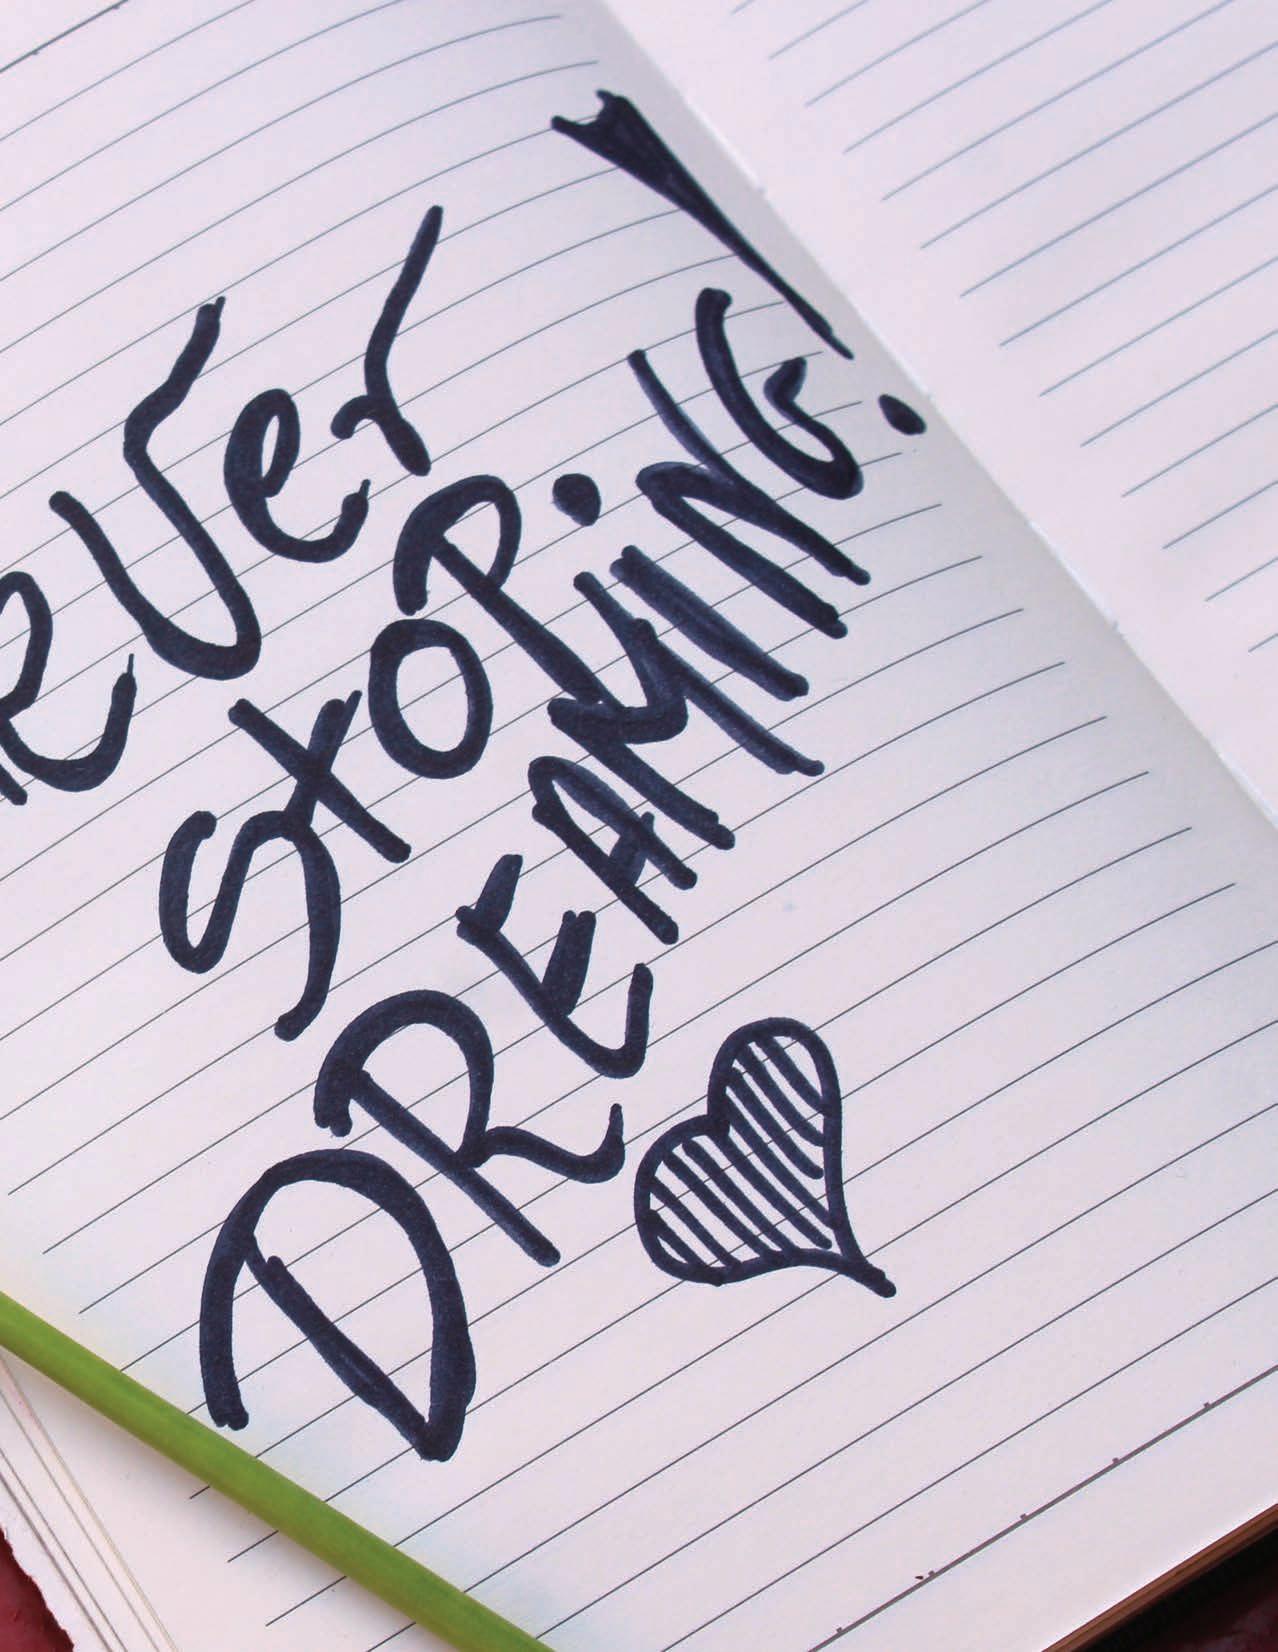 eVer
StOP.
DREAMING!